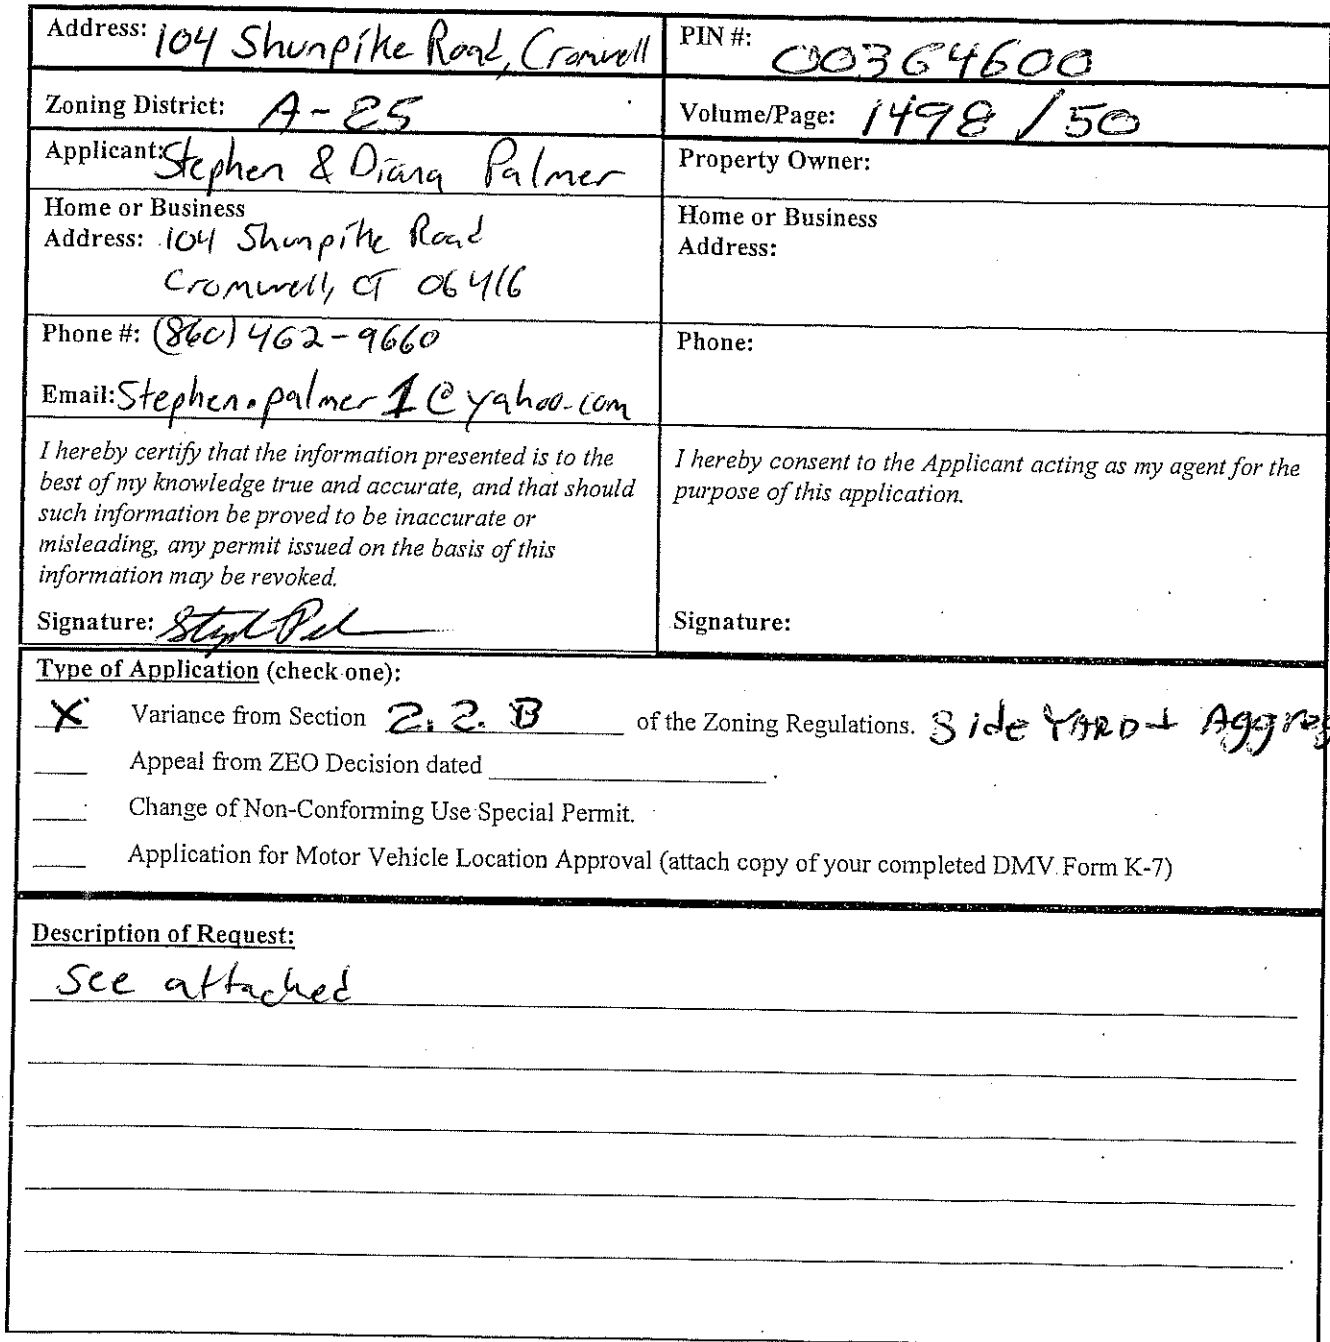 Address: 104 Shunpike Road, Cromwell
PIN #: 00364600
Zoning District: A-25
Volume/Page: 1498 / 50
Applicant: Stephen & Diana Palmer
Property Owner:
Home or Business
Address: 104 Shunpike Road
Cromwell, CT 06416
Home or Business
Address:
Phone #: (860) 462-9660
Phone:
Email: Stephen.palmer1@yahoo.com
I hereby certify that the information presented is to the
best of my knowledge true and accurate, and that should
such information be proved to be inaccurate or
misleading, any permit issued on the basis of this
information may be revoked.
Signature:
I hereby consent to the Applicant acting as my agent for the
purpose of this application.
Signature:
Type of Application (check one):
X Variance from Section 2.2.B of the Zoning Regulations. Side YARD + Aggreg
Appeal from ZEO Decision dated .
Change of Non-Conforming Use Special Permit.
Application for Motor Vehicle Location Approval (attach copy of your completed DMV Form K-7)
Description of Request:
See attached